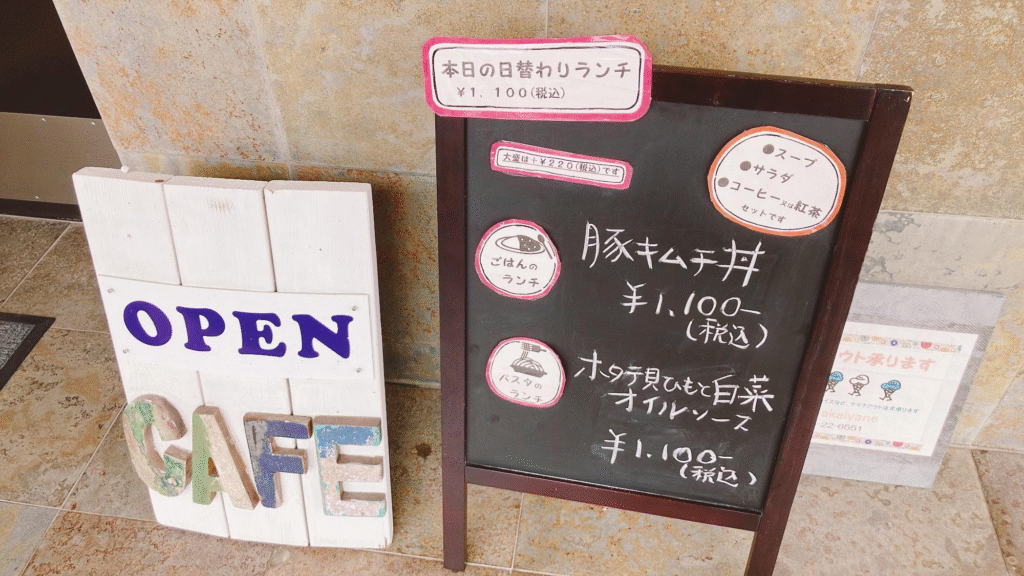 OPEN
CAFE
本日の日替わりランチ
￥1,100(税込)
大盛は+￥220(税込)です
●スープ
●サラダ
●コーヒー又は紅茶
セットです
ごはんの
ランチ
豚キムチ丼
¥1,100-
(税込)
パスタの
ランチ
ホタテ貝ひもと白菜
オイルソース
¥1,100-
(税込)
ウト承ります
22-6551